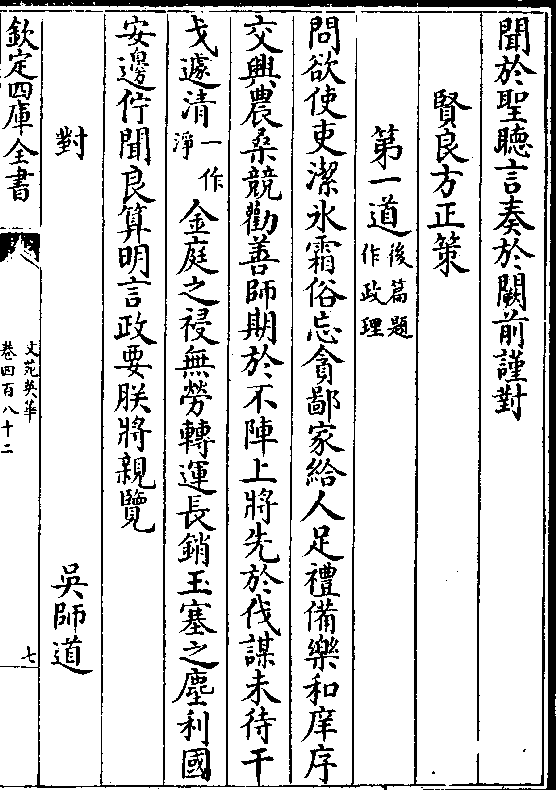 聞於聖聽言奏於闕前謹對
賢良方正策
第一道後篇題作政理
問欲使吏潔氷霜俗忘貪鄙家給人足禮備樂和庠序
交興農桑競勸善師期於不陣上將先於伐謀未待干
戈遽清一作淨金庭之祲無勞轉運長銷玉塞之塵利國
安邊佇聞良算明言政要朕將親覽
對
吳師道
欽定四庫全書
文苑英華
卷四百八十二
七